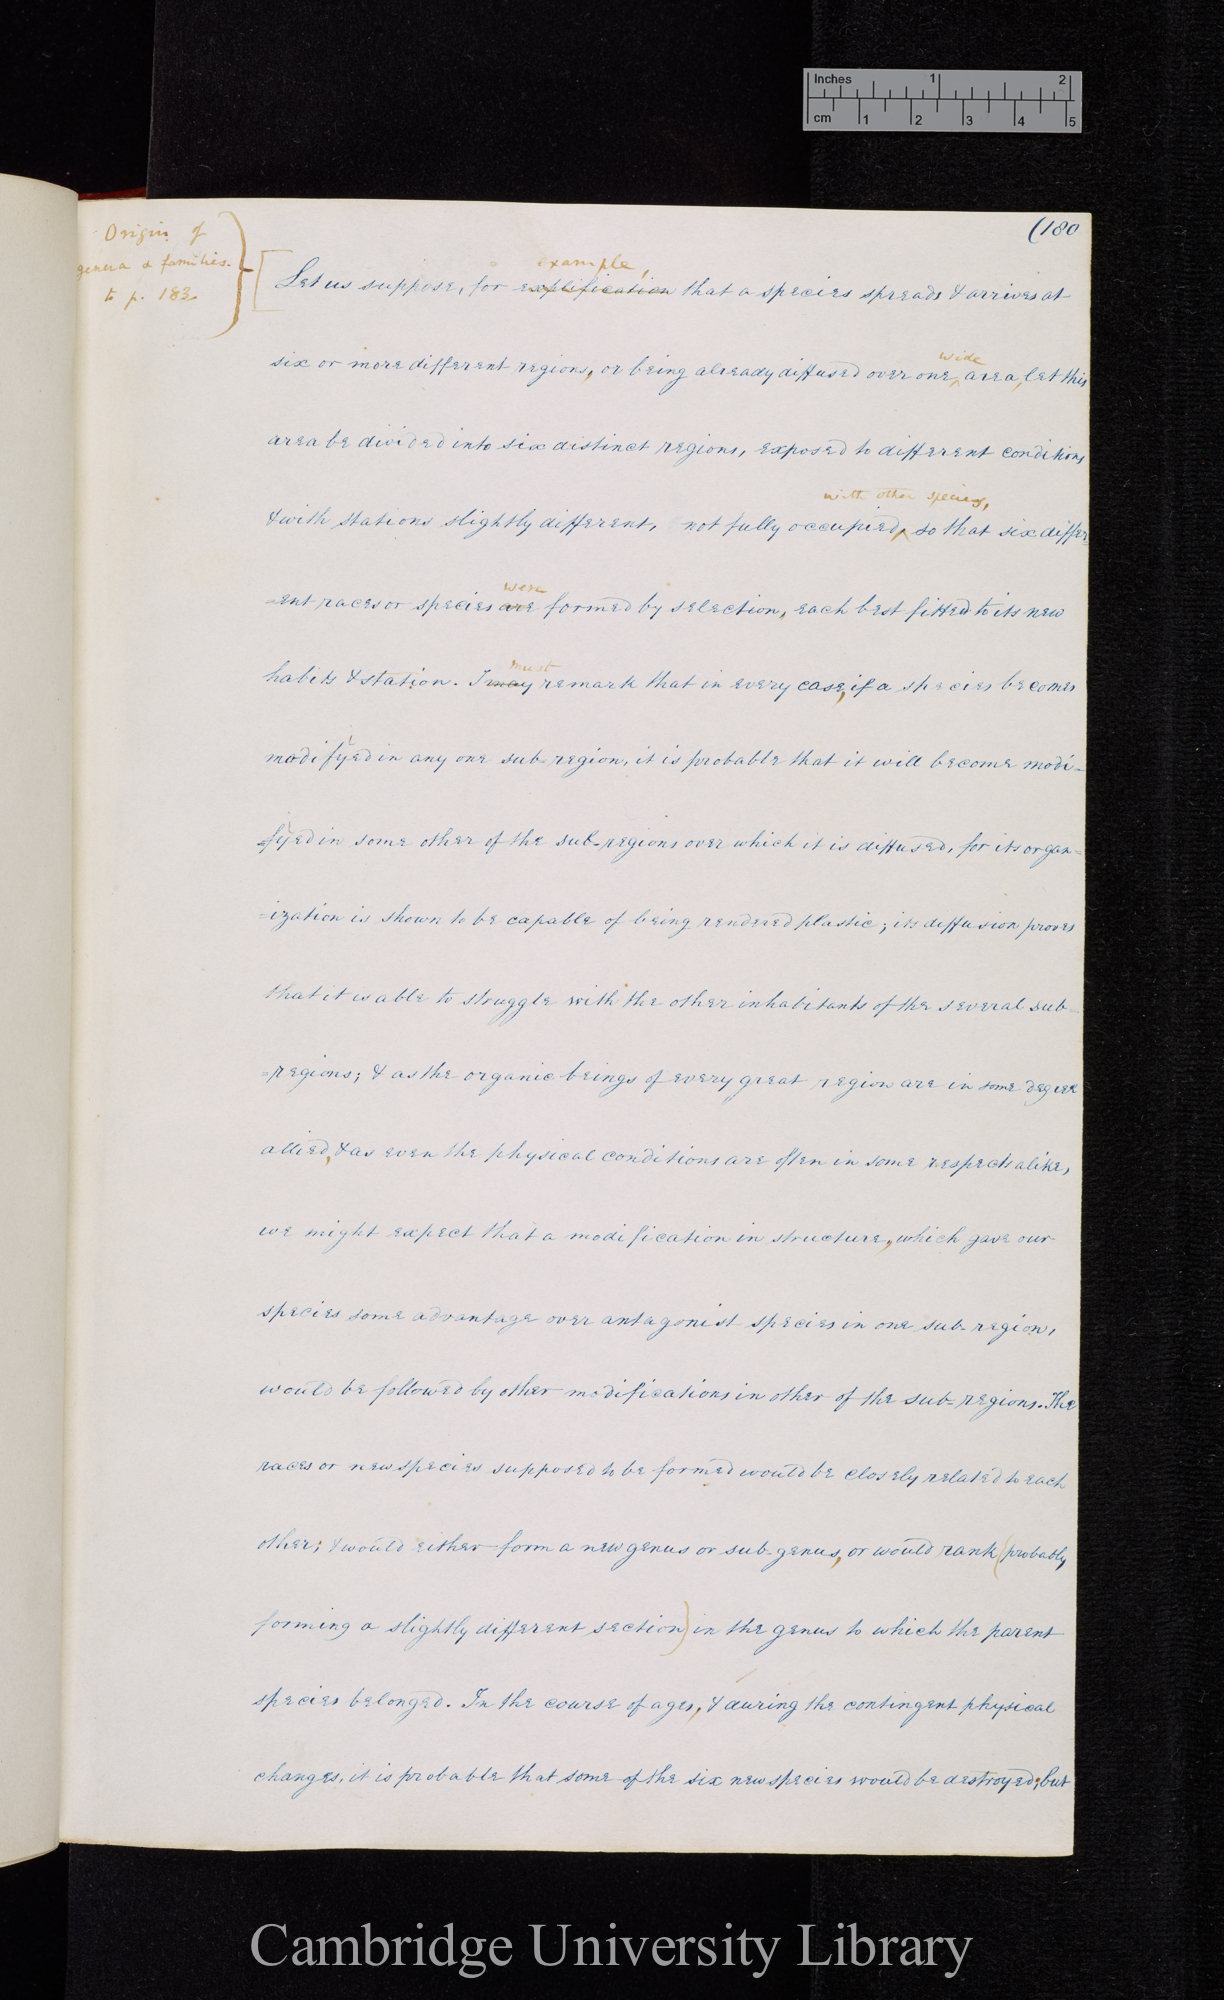 Inches 1 2
cm 1 2 3 4 5
(180
Origin of
genera & families.
to p. 183.
example,
Let us suppose, for explification that a species spreads & arrives at
wide
six or more different regions, or being already diffused over one, area, let this
area be divided into six distinct regions, exposed to different conditions
with other species,
& with stations slightly different, not fully occupied, so that six differ-
were
=ent races or species are formed by selection, each best fitted to its new
must
habits & station. I may remark that in every case, if a species becomes
modifyed in any one sub-region, it is probable that it will become modi-
fyed in some other of the sub-regions over which it is diffused, for its organ=
=ization is shown to be capable of being rendered plastic; its diffusion proves
that it is able to struggle with the other inhabitants of the several sub-
=regions; & as the organic beings of every great region are in some degree
allied, & as even the physical conditions are often in some respects alike,
we might expect that a modification in structure, which gave our
species some advantage over antagonist species in one sub-region,
would be followed by other modifications in other of the sub-regions. The
races or new species supposed to be formed would be closely related to each
other; & would either form a new genus or sub-genus, or would rank (probably
forming a slightly different section) in the genus to which the parent
species belonged. In the course of ages, & during the contingent physical
changes, it is probable that some of the six new species would be destroyed; but
Cambridge University Library